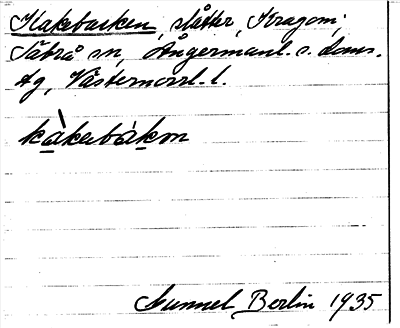 Kakebacken, slåtter, Kragom,
Säbrå sn, Ångermanl. s. doms.
ag, Västernorrl. l.
kàkabákən
Gunnel Berlin 1935